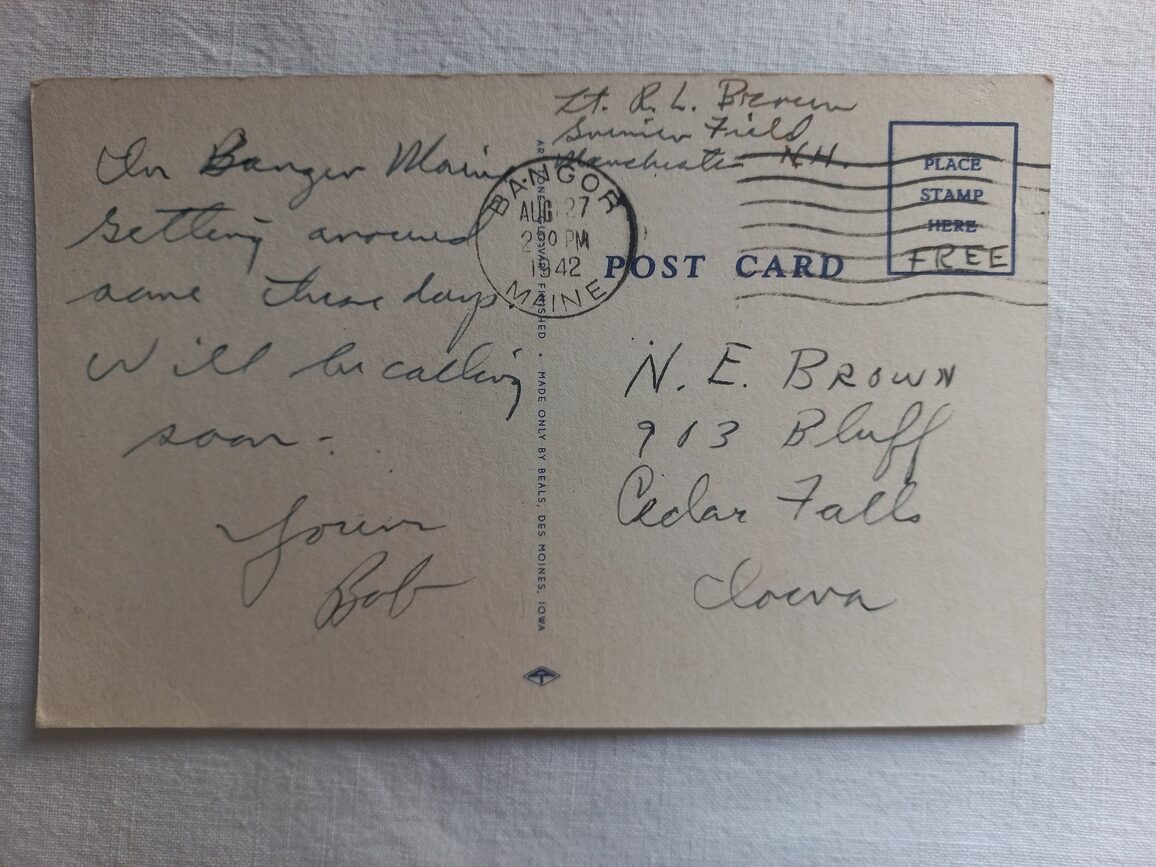 Lt. R. L. Brown
Grenier Field
Manchester N.H.
In Bangor Maine
Getting around
some these days.
Will be calling
soon -
Yours
Bob
BANGOR
AUG 27
2 30 PM
1942
MAINE
PLACE
STAMP
HERE
FREE
POST CARD
N. E. BROWN
913 Bluff
Cedar Falls
Iowa
FINISHED . MADE ONLY BY BEALS, DES MOINES, IOWA